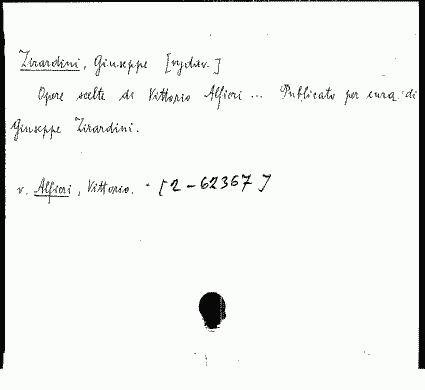 Zirardini, Giuseppe [vydav.]
Opere scelte di Vittorio Alfieri ... Publicato per cura di
Giuseppe Zirardini.
v. Alfieri, Vittorio. - [2-62367]